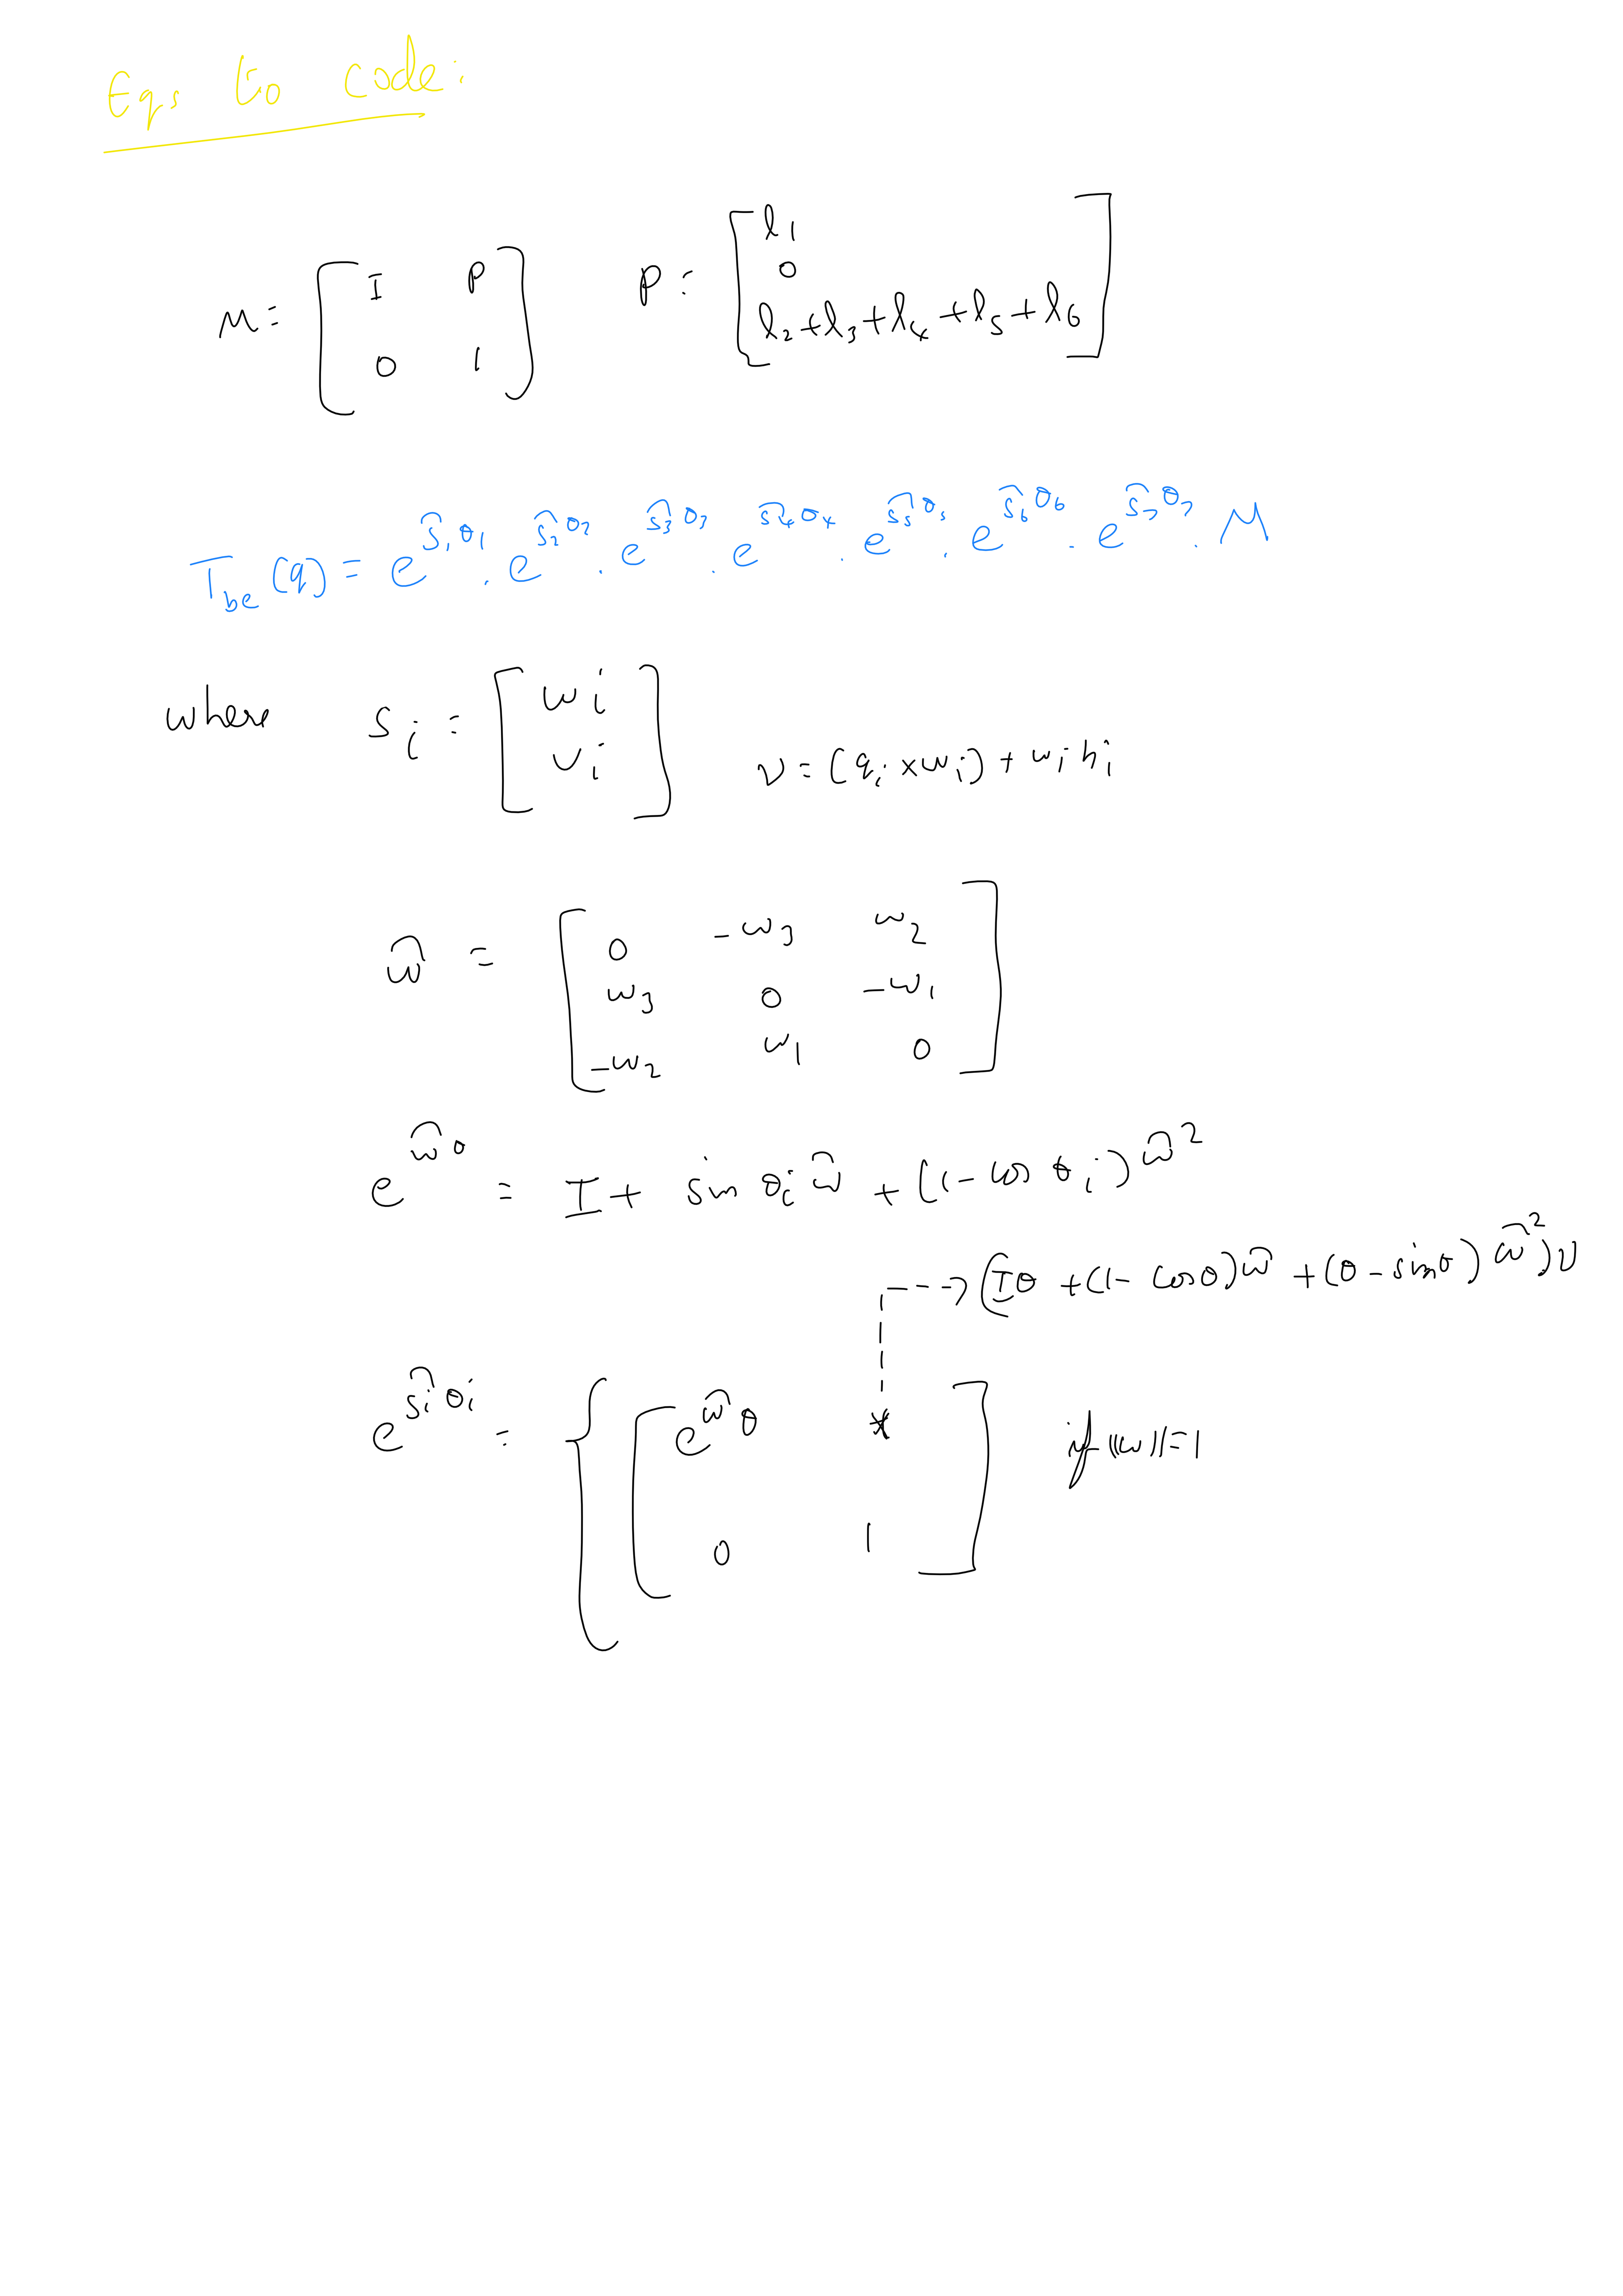 Eqs to code:
M = [ I p ; 0 1 ] p = [ l₁ ; 0 ; l₂+l₃+l₄+l₅+l₆ ]
T_be(q) = e^{ŝ₁θ₁} . e^{ŝ₂θ₂} . e^{ŝ₃θ₃} . e^{ŝ₄θ₄} . e^{ŝ₅θ₅} . e^{ŝ₆θ₆} . e^{ŝ₇θ₇} . M
where s_i = [ w_i ; v_i ] v = (q_i × w_i) + w_i h_i
ŵ = [ 0 -w₃ w₂ ; w₃ 0 -w₁ ; -w₂ w₁ 0 ]
e^{ŵθ} = I + sin θ_i ŵ + (1 - cos θ_i) ŵ²
--> (Iθ + (1 - cos θ)ŵ + (θ - sin θ) ŵ²) v
e^{ŝ_i θ_i} = { [ e^{ŵθ} * ; 0 1 ] if ||w|| = 1